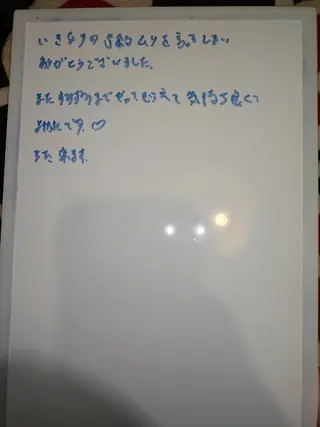 いきなりの予約ムリを言ってしまい
ありがとうございました。
また すみずみまでやってもらえて 気持ち良くて
よかったです♡
また 来ます。